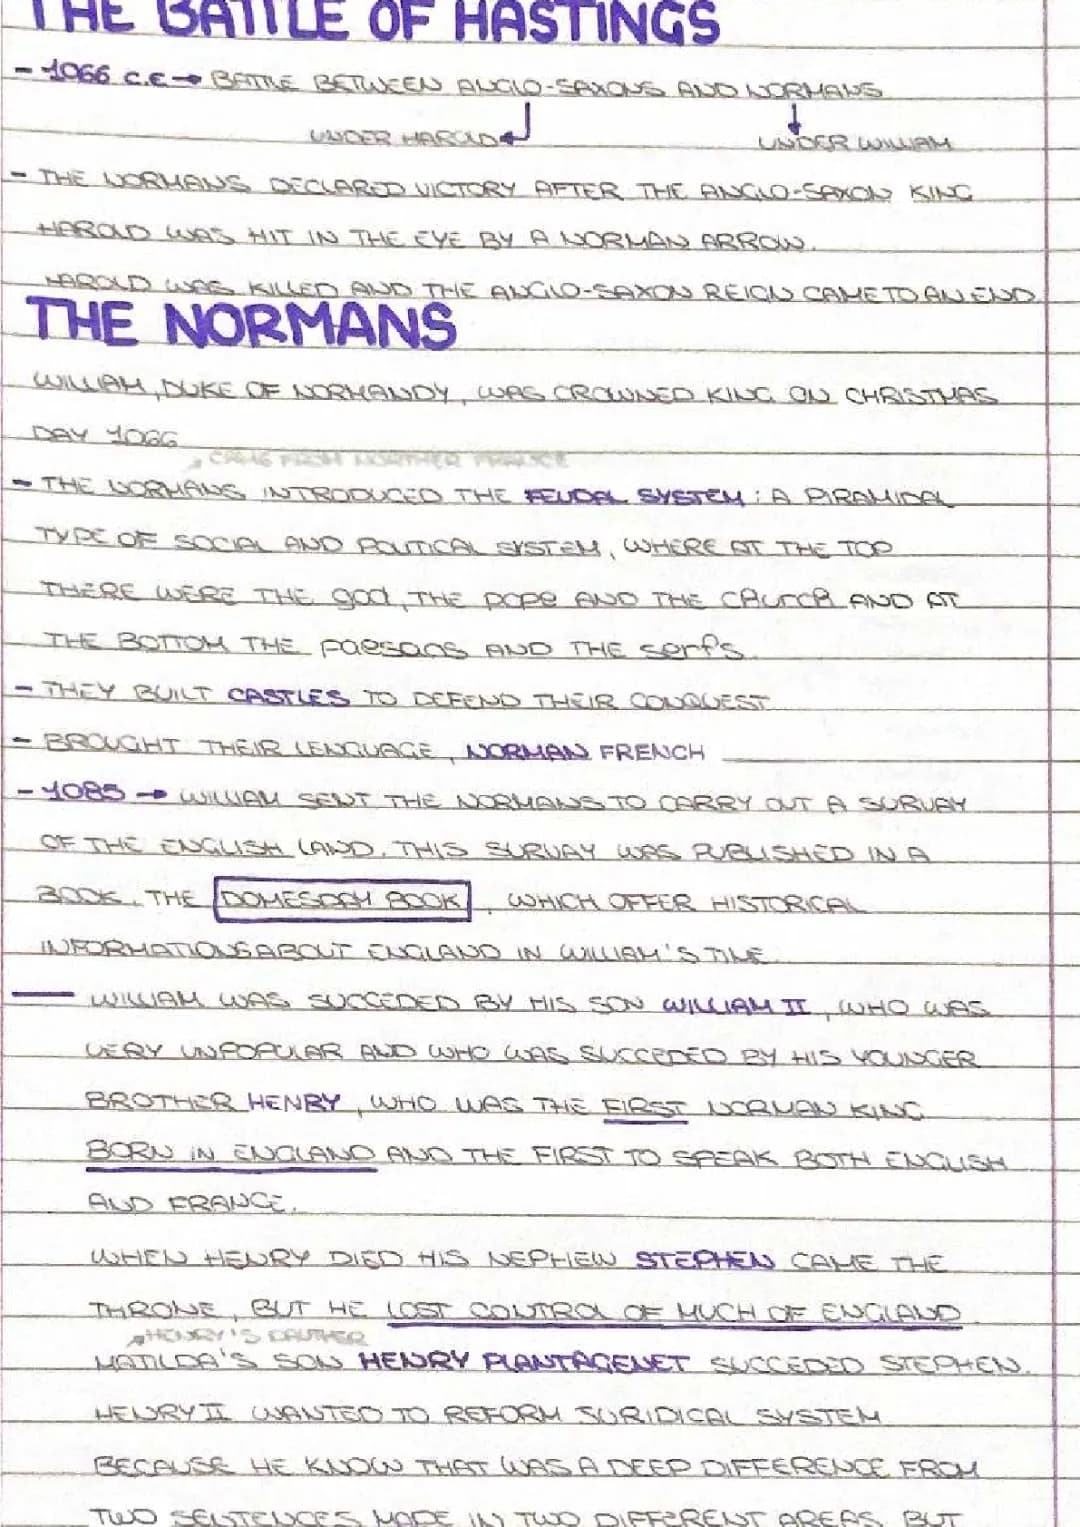 THE BATTLE OF HASTINGS
- 1066 C.E → BATTLE BETWEEN ANGLO-SAXONS AND NORMANS
UNDER HAROLD UNDER WILLIAM
- THE NORMANS DECLARED VICTORY AFTER THE ANGLO-SAXON KING
HAROLD WAS HIT IN THE EYE BY A NORMAN ARROW.
HAROLD WAS KILLED AND THE ANGLO-SAXON REIGN CAME TO AN END
THE NORMANS
WILLIAM, DUKE OF NORMANDY, WAS CROWNED KING ON CHRISTMAS
DAY 1066
CAME FROM NORTHER FRANCE
- THE NORMANS INTRODUCED THE FEUDAL SYSTEM: A PIRAMIDAL
TYPE OF SOCIAL AND POLITICAL SYSTEM, WHERE AT THE TOP
THERE WERE THE god, THE pope AND THE CRURCR AND AT
THE BOTTOM THE paesaos AND THE serfs.
- THEY BUILT CASTLES TO DEFEND THEIR CONQUEST
- BROUGHT THEIR LENGUAGE, NORMAN FRENCH
- 1085 → WILLIAM SENT THE NORMANS TO CARRY OUT A SURVAY
OF THE ENGLISH LAND. THIS SURVAY WAS PUBLISHED IN A
BOOK, THE DOMESDAY BOOK, WHICH OFFER HISTORICAL
INFORMATIONS ABOUT ENGLAND IN WILLIAM'S TIME
— WILLIAM WAS SUCCEDED BY HIS SON WILLIAM II, WHO WAS
VERY UNPOPULAR AND WHO WAS SUCCEDED BY HIS YOUNGER
BROTHER HENRY, WHO WAS THE FIRST NORMAN KING
BORN IN ENGLAND AND THE FIRST TO SPEAK BOTH ENGLISH
AND FRANCE.
WHEN HENRY DIED HIS NEPHEW STEPHEN CAME THE
THRONE, BUT HE LOST CONTROL OF MUCH OF ENGLAND.
HENRY'S DAUTHER
MATILDA'S SON HENRY PLANTAGENET SUCCEDED STEPHEN.
HENRY II WANTED TO REFORM SURIDICAL SYSTEM
BECAUSE HE KNOW THAT WAS A DEEP DIFFERENCE FROM
TWO SENTENCES MADE IN TWO DIFFERENT AREAS, BUT